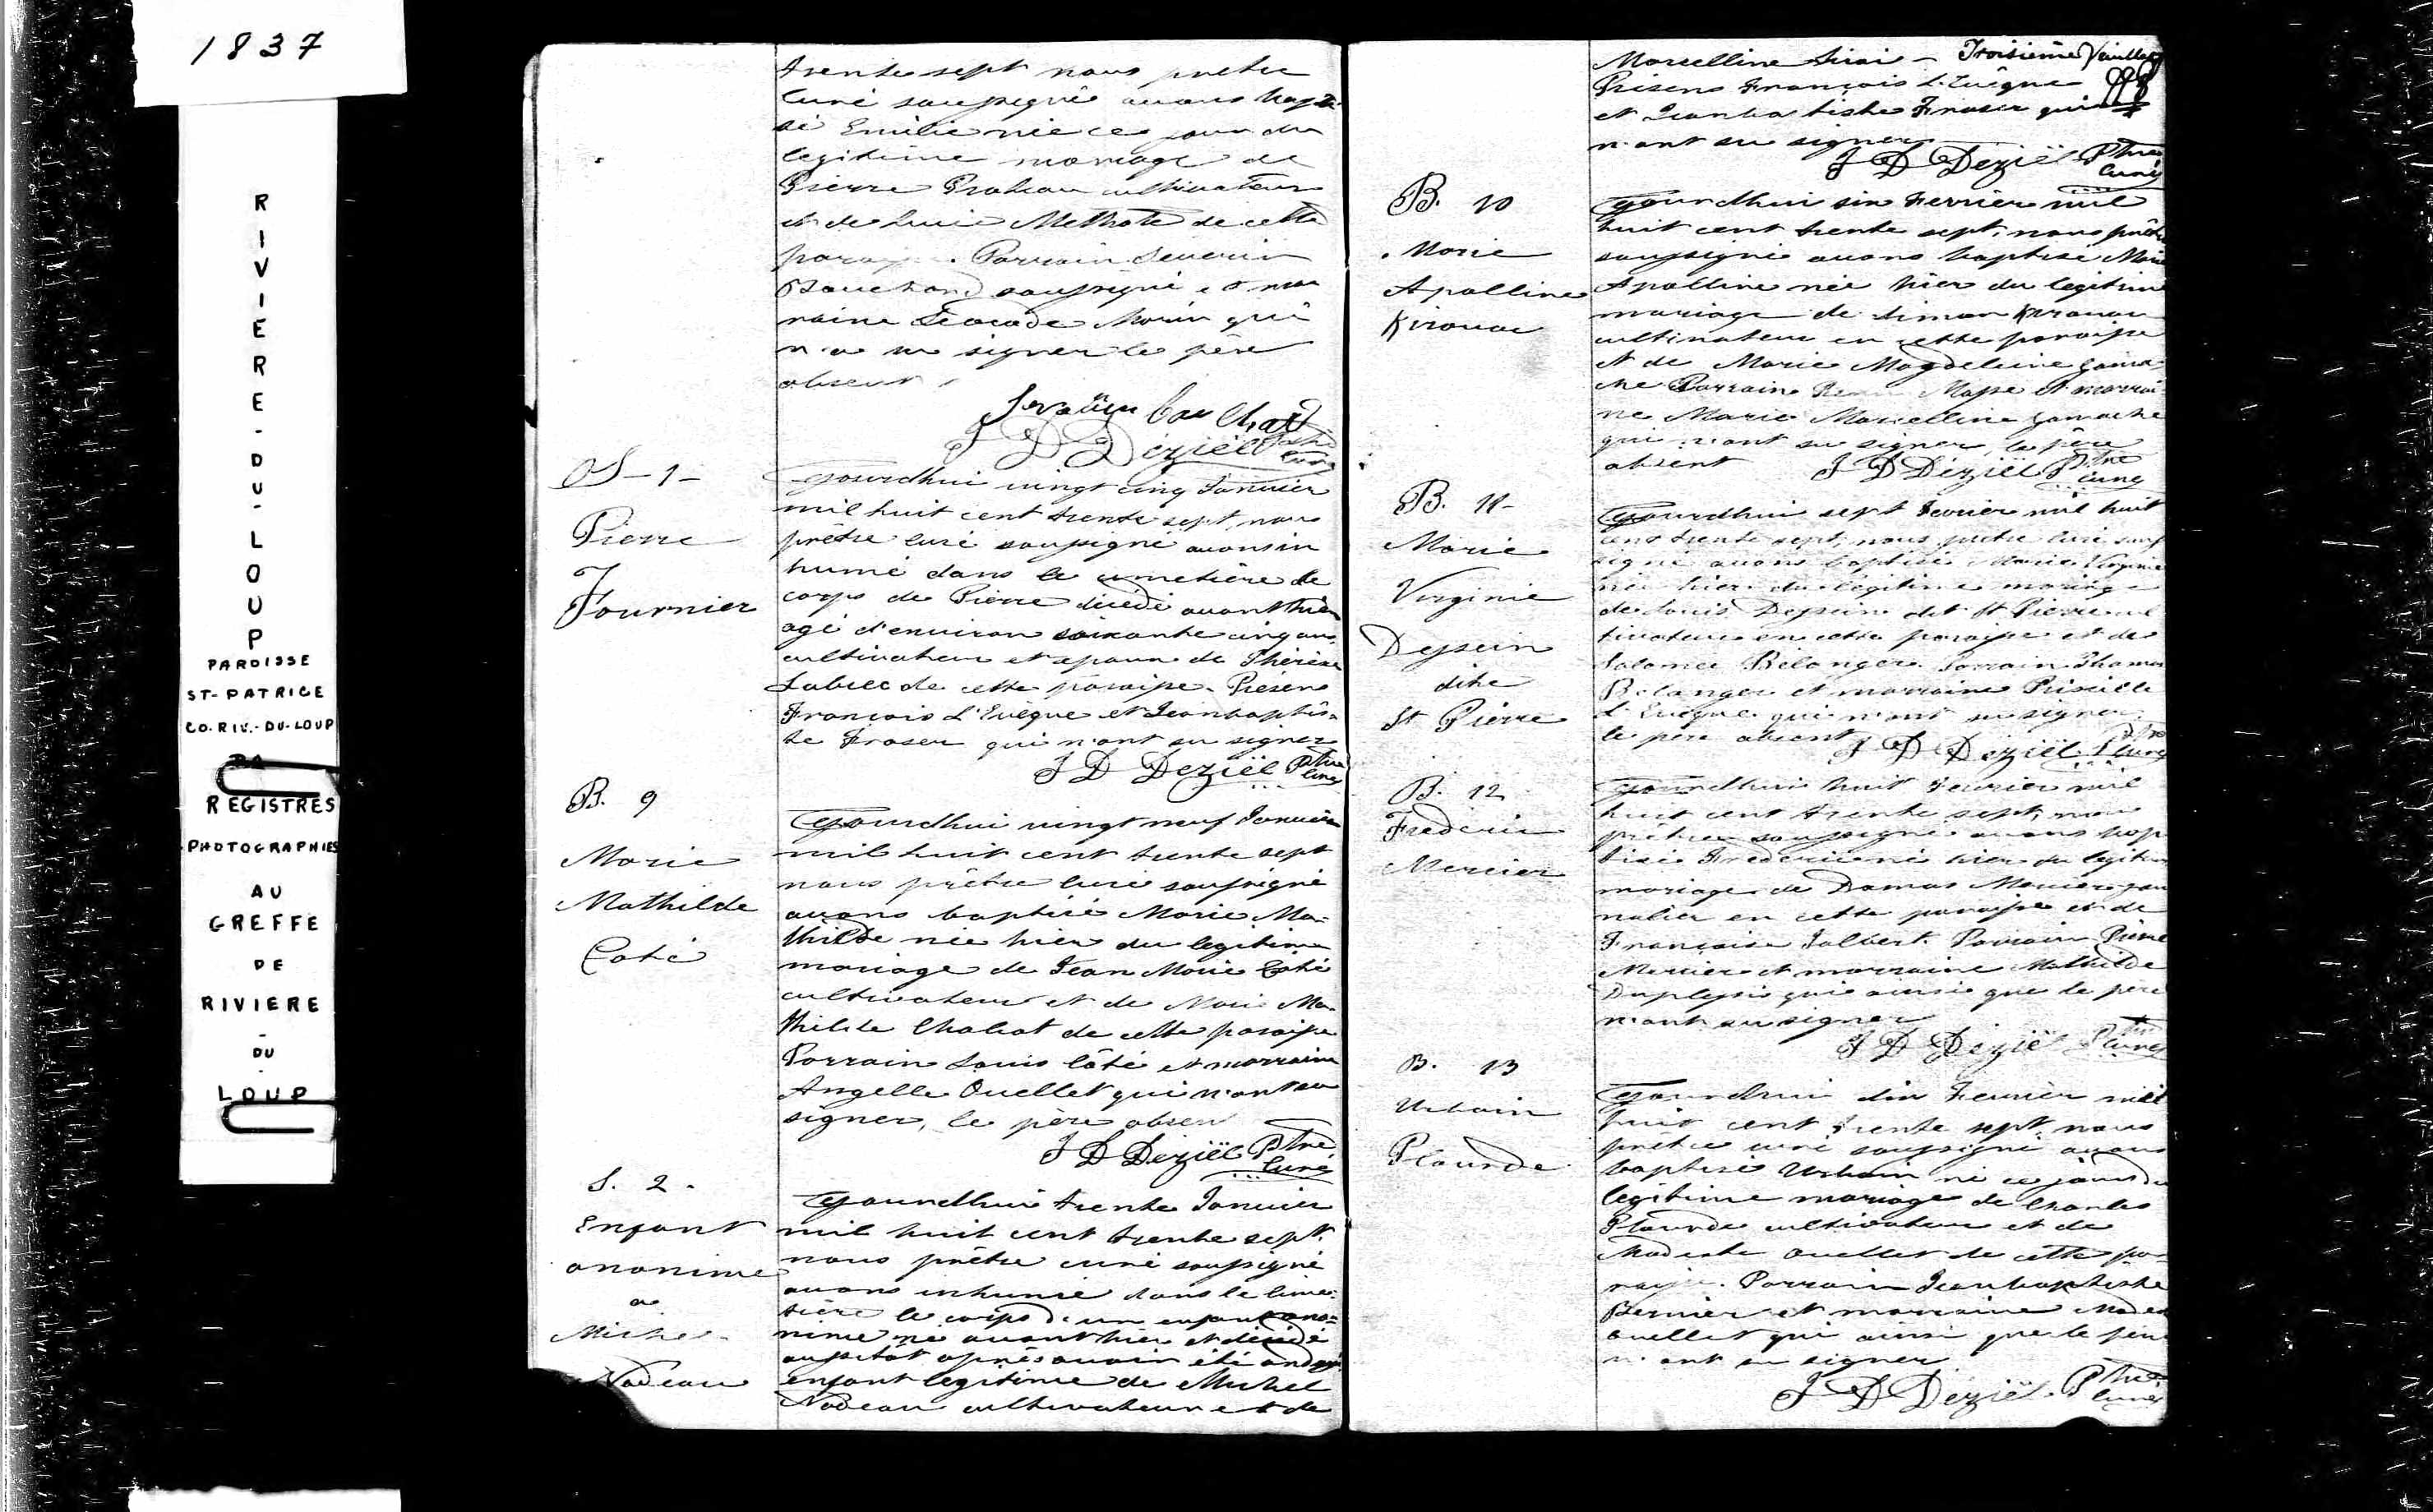 1837
RIVIERE-DU-LOUP
PAROISSE
ST-PATRICE
CO. RIV.-DU-LOUP
REGISTRES
PHOTOGRAPHIES
AU
GREFFE
DE
RIVIERE
-
DU
-
LOUP
trente sept nous prêtre
curé soussigné avons bapti
sé Emilie née ce jour du
legitime mariage de
Pierre cultivateur
et de Methote de cette
paroisse. Parrain Severin
Bouchard soussigné et mar
raine Leocade Morin qui
n'a su signer le père
absent
J D Déziel Ptre
curé
S-1-
Pierre
Fournier
Ajourdhui vingt cinq Janvier
mil huit cent trente sept, nous
prêtre curé soussigné avons in
humé dans le cimetière le
corps de Pierre décédé avant hier
agé d'environ soixante cinq ans,
cultivateur et epoux de Thérèse
de cette paroisse. Présens
François L'Evêque et Jeanbaptis-
te Fraser qui n'ont su signer
J D Deziel Ptre
curé
B. 9
Marie
Mathilde
Coté
Ajourdhui vingt neuf Janvier
mil huit cent trente sept
nous prêtre curé soussigné
avons baptisé Marie Ma-
thilde née hier du legitime
mariage de Jean Marie Coté
cultivateur et de Marie Ma-
thilde Chabot de cette paroisse
Parrain Louis Côté et marraine
Angelle Ouellet qui n'ont su
signer, le père absent
J D Déziel Ptre
Curé
S. 2.
Enfant
anonime
a
Michel
Nadeau
Ajourdhui trente Janvier
mil huit cent trente sept.
nous prêtre curé soussigné
avons inhumé dans le cime-
tière le corps d'un enfant ano-
nime né avant hier et décédé
aussitôt après avoir été ondoyé
enfant legitime de Michel
Nadeau cultivateur et de
Marcelline Sirois - Troisième feuillet
Présens François L'Evêque
et Jeanbaptiste Fraser qui
n'ont su signer
J D Déziel Ptre
Curé
B. 10
Marie
Apolline
Kirouac
Ajourdhui six Fevrier mil
huit cent trente sept, nous prêtre
soussigné avons baptisé Marie
Apolline née hier du legitime
mariage de Simon Kirouac
cultivateur en cette paroisse
et de Marie Magdeleine Gama-
che Parrain Massé et marrai-
ne Marie Marcelline Gamache
qui n'ont su signer, le père
absent J D Déziel Ptre
curé
B. 11-
Marie
Virginie
Dessein
dite
St Pierre
Ajourdhui sept Fevrier mil huit
cent trente sept, nous prêtre curé sous
signé avons baptisé Marie Virginie
née hier du légitime mariage
de Louis Dessein dit St Pierre cul
tivateur en cette paroisse et de
Salomée Bélanger. Parrain Thomas
Bélanger et marraine Priscille
L'Evêque qui n'ont su signer,
le père absent J D Déziel Ptre
curé
B. 12
Frédéric
Mercier
Ajourdhui huit Fevrier mil
huit cent trente sept, nous
prêtre soussigné avons bap
tisé Frederic né hier du legitime
mariage de Damas Mercier jour
nalier en cette paroisse et de
Françoise Jalbert. Parrain Pierre
Mercier et marraine Mathilde
Duplessis qui ainsi que le père
n'ont su signer
J D Déziel Ptre
curé
B. 13
Urbain
Plourde
Ajourdhui dix Fevrier mil
huit cent trente sept, nous
prêtre curé soussigné avons
baptisé Urbain né ce jour du
legitime mariage de Charles
Plourde cultivateur et de
Modeste Ouellet de cette pa-
roisse. Parrain Jeanbaptiste
Bernier et marraine
Ouellet qui ainsi que le père
n'ont su signer
J D Déziel Ptre
Curé